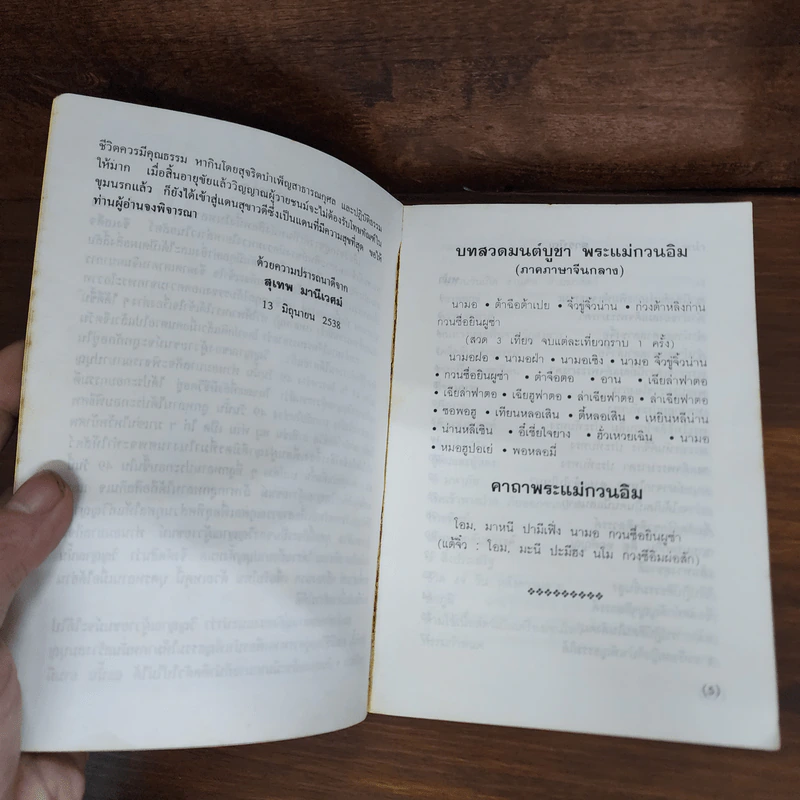 ชีวิตควรมีคุณธรรม หากินโดยสุจริตบำเพ็ญสาธารณกุศล และปฏิบัติธรรม
ให้มาก เมื่อสิ้นอายุขัยแล้ววิญญาณผู้วายชนม์จะไม่ต้องรับโทษทัณฑ์ใน
ขุมนรกแล้ว ก็ยังได้เข้าสู่แดนสุขาวดีซึ่งเป็นแดนที่มีความสุขที่สุด ขอให้
ท่านผู้อ่านจงพิจารณา
ด้วยความปรารถนาดีจาก
สุเทพ มานีเวศม์
13 มิถุนายน 2538
บทสวดมนต์บูชา พระแม่กวนอิม
(ภาคภาษาจีนกลาง)
นามอ • ต้าฉือต้าเปย • จิ้วขู่จิ้วน่าน • ก่วงต้าหลิงก่าน
กวนซือยินผูซ่า
(สวด 3 เที่ยว จบแต่ละเที่ยวกราบ 1 ครั้ง)
นามอฝอ • นามอฝ่า • นามอเซิง • นามอ จิ้วขู่จิ้วน่าน
• กวนซือยินผูซ่า • ต๋าจือตอ • อาน • เฉียล่าฟาตอ
• เฉียล่าฟาตอ • เฉียฮูฟาตอ • ล่าเฉียฟาตอ • ล่าเฉียฟาตอ
• ซอพอฮู • เทียนหลอเสิน • ตี้หลอเสิน • เหยินหลีน่าน
• น่านหลีเซิน • อี๋เชี่ยไจยาง • ฮั่วเหวยเฉิน • นามอ
• หมอฮูปอเย่ • พอหลอมี่
คาถาพระแม่กวนอิม
โอม. มาหนี ปามีเฟิง นามอ กวนซือยินผูซ่า
(แต้จิ๋ว : โอม. มะนี ปะมีฮง นโม กวงซีอิมผ่อสัก)
(5)